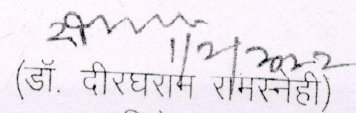 1/2/2022
(डॉ. दीरघराम रामस्नेही)